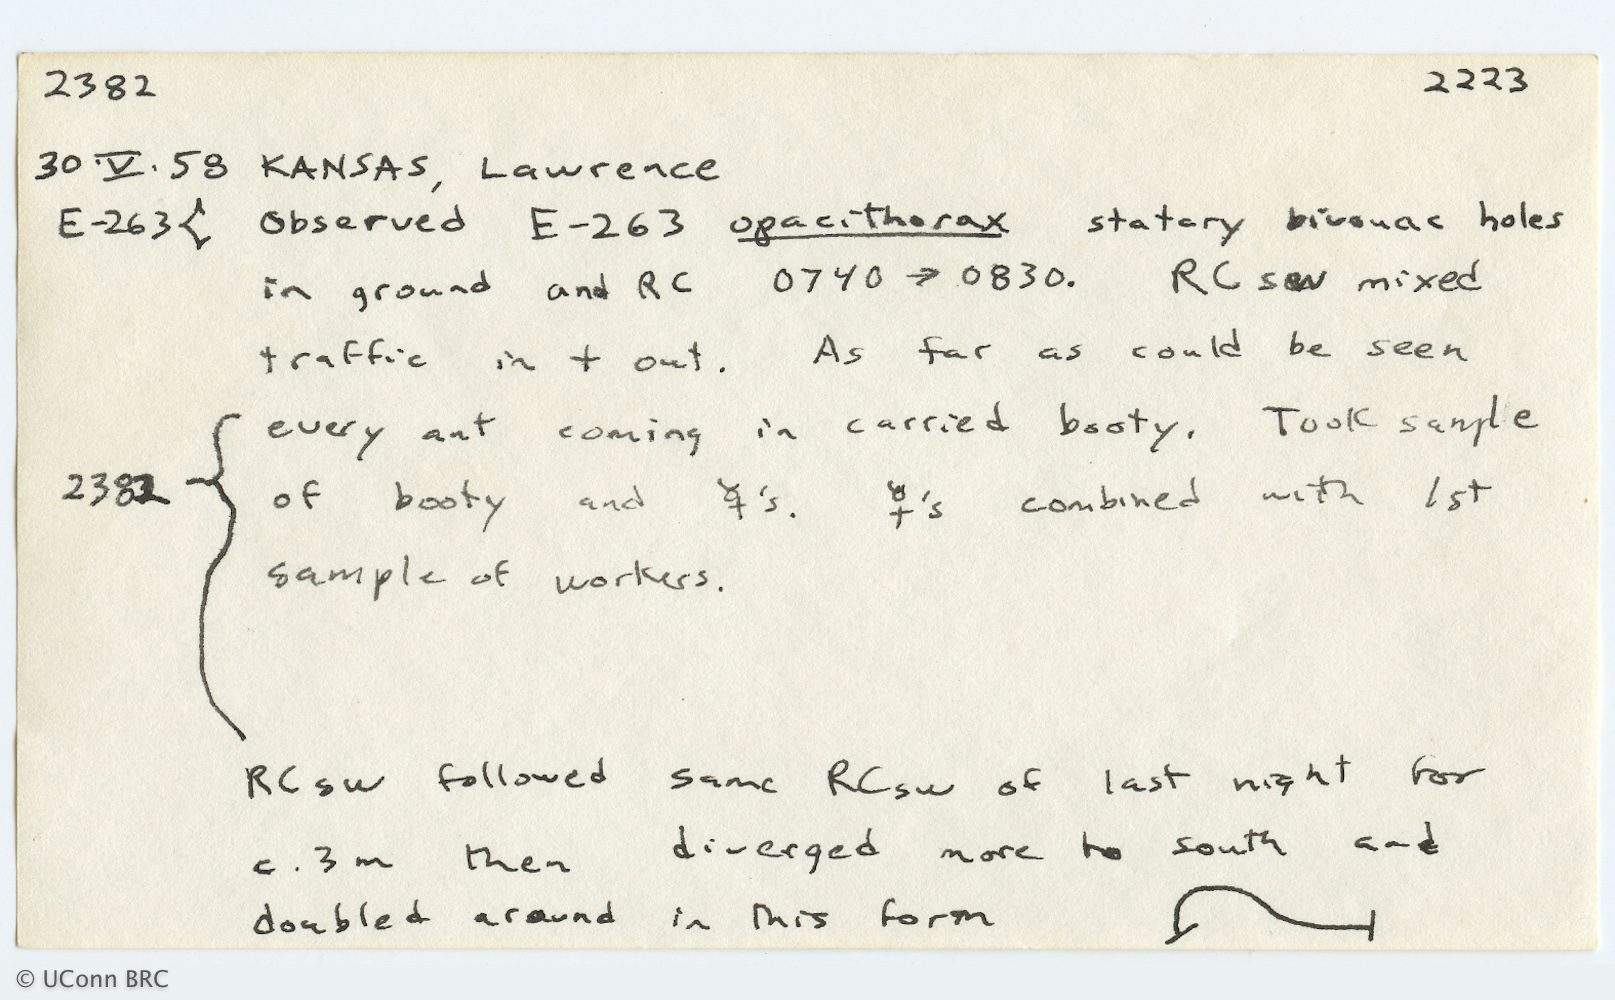 2382 2223
30·V·58 KANSAS, Lawrence
E-263{ Observed E-263 opacithorax statary bivouac holes
in ground and RC 0740 → 0830. RC sw mixed
traffic in + out. As far as could be seen
every ant coming in carried booty. Took sample
2382 { of booty and ☿'s. ☿'s combined with 1st
sample of workers.
RC sw followed same RC sw of last night for
c. 3 m then diverged more to south and
doubled around in this form
© UConn BRC